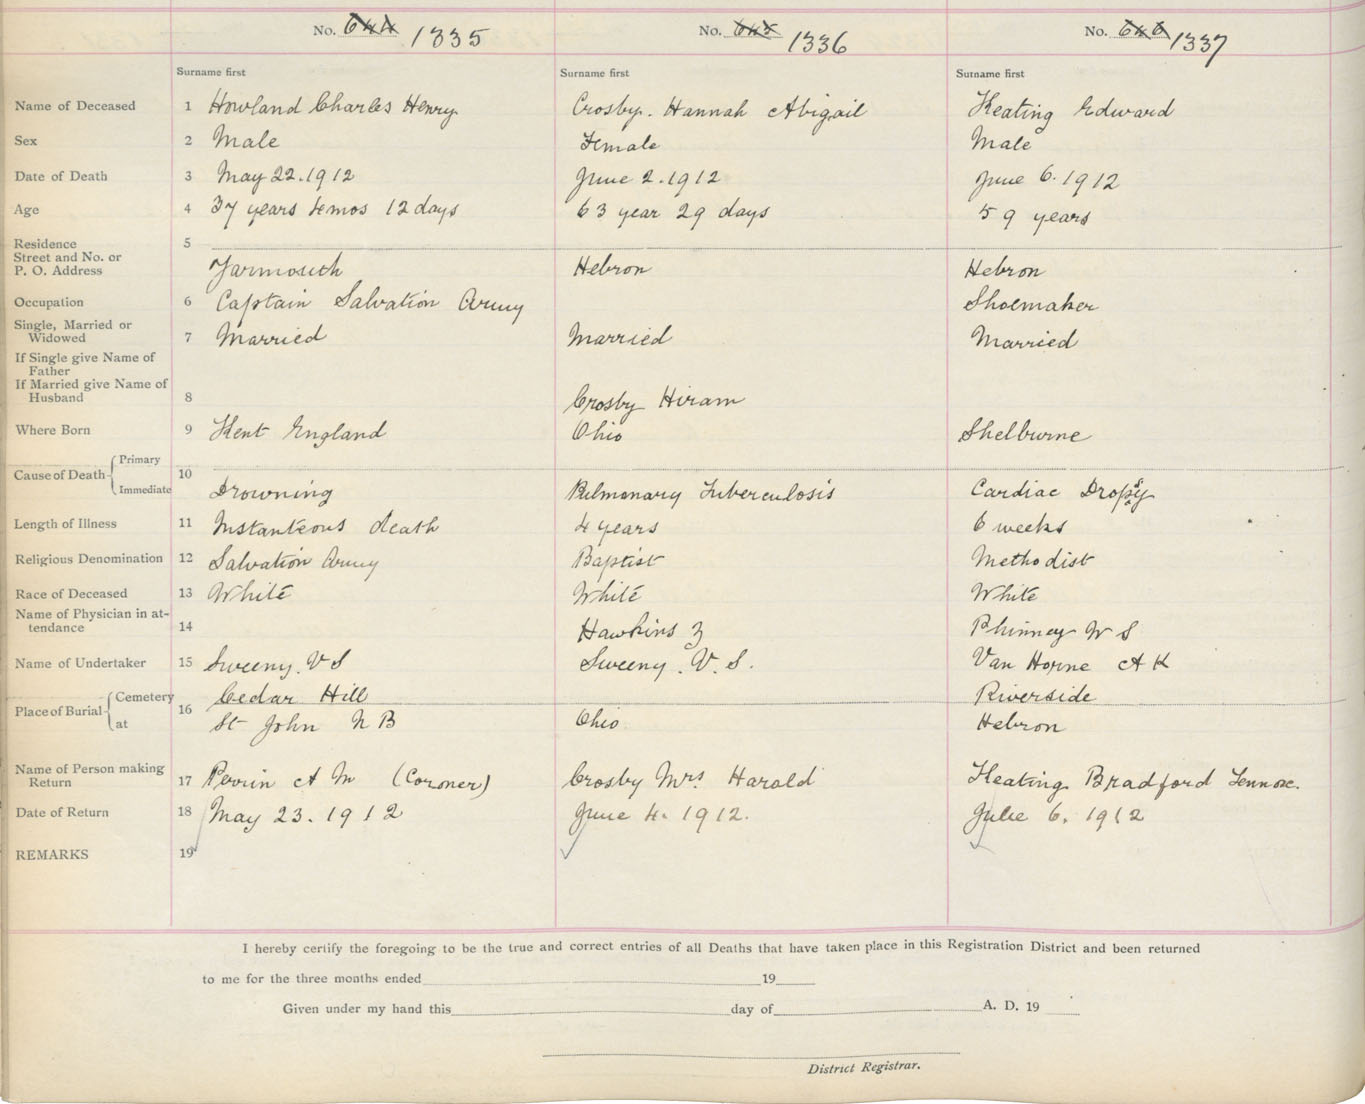 No. 644 1335 No. 645 1336 No. 646 1337
Surname first Surname first Surname first
Name of Deceased 1 Howland Charles Henry Crosby. Hannah Abigail Keating Edward
Sex 2 Male Female Male
Date of Death 3 May 22. 1912 June 2. 1912 June 6. 1912
Age 4 37 years 4 mos 12 days 63 year 29 days 59 years
Residence 5
Street and No. or
P. O. Address Yarmouth Hebron Hebron
Occupation 6 Captain Salvation Army Shoemaker
Single, Married or
Widowed 7 Married Married Married
If Single give Name of
Father
If Married give Name of
Husband 8 Crosby Hiram
Where Born 9 Kent England Ohio Shelburne
Primary
Cause of Death 10
Immediate Drowning Pulmonary Tuberculosis Cardiac Dropsy
Length of Illness 11 Instanteous death 4 years 6 weeks
Religious Denomination 12 Salvation Army Baptist Methodist
Race of Deceased 13 White White White
Name of Physician in at-
tendance 14 Hawkins Z Phinney W S
Name of Undertaker 15 Sweeny. V S Sweeny. V. S. Van Horne A K
Cemetery Cedar Hill Riverside
Place of Burial 16
at St John N B Ohio Hebron
Name of Person making
Return 17 Perrin A M (Coroner) Crosby Mrs. Harold Keating Bradford Lennox.
Date of Return 18 May 23. 1912 June 4. 1912. 6. 1912
REMARKS 19
I hereby certify the foregoing to be the true and correct entries of all Deaths that have taken place in this Registration District and been returned
to me for the three months ended 19
Given under my hand this day of A. D. 19
District Registrar.